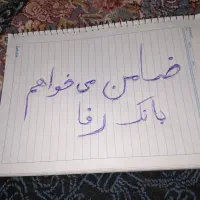 ضامن می‌خواهم
بانک رفا